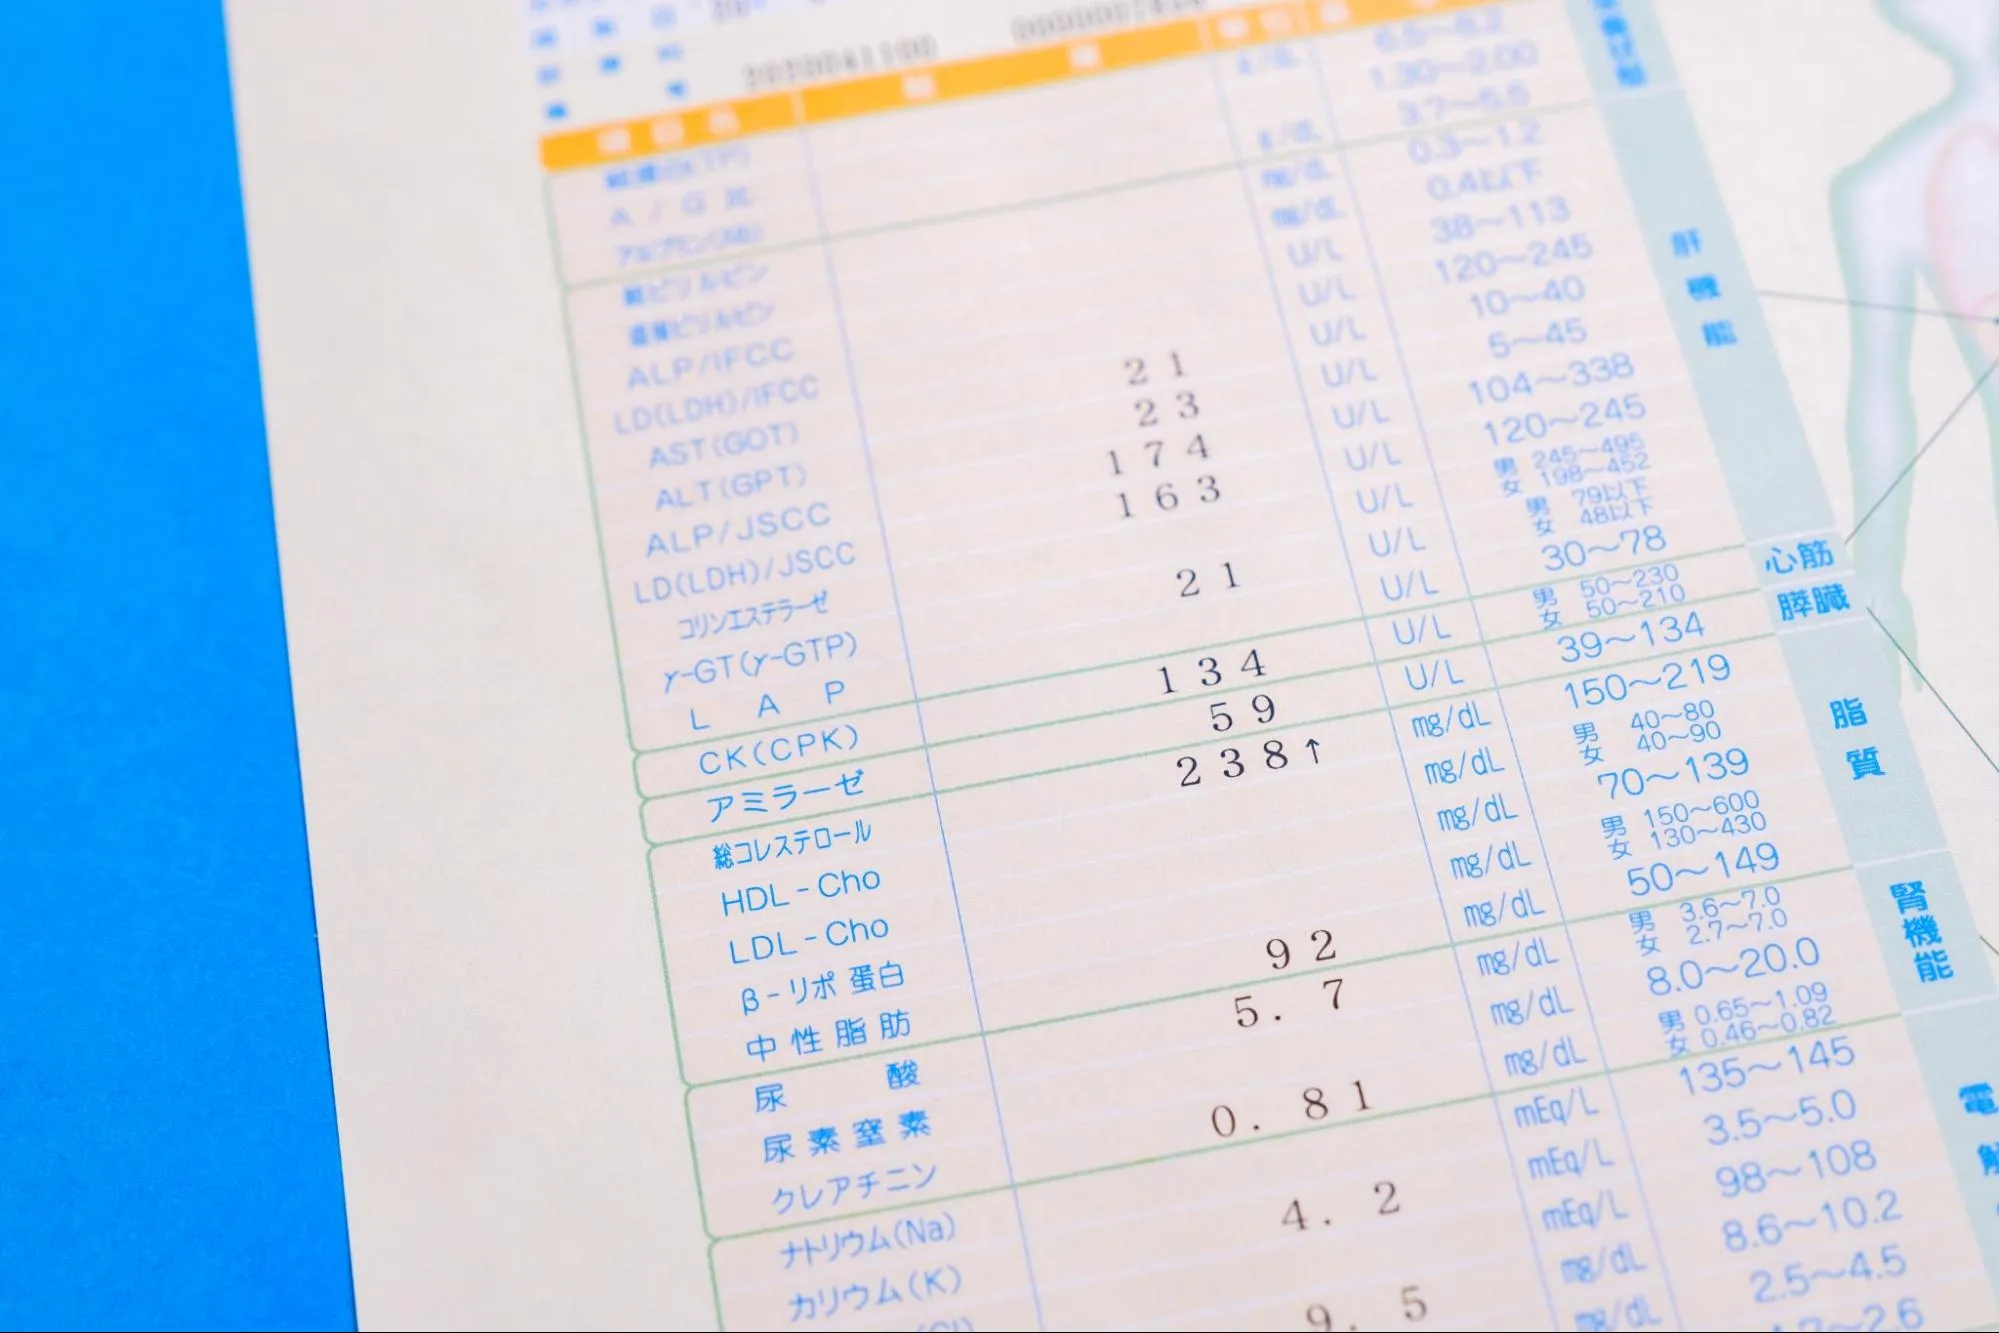 2020041100
項目名
総蛋白(TP) g/dL 6.5～8.2
A/G比 1.30～2.00
アルブミン(Alb) g/dL 3.7～5.5
総ビリルビン mg/dL 0.3～1.2
直接ビリルビン mg/dL 0.4以下
ALP/IFCC U/L 38～113
肝機能
LD(LDH)/IFCC U/L 120～245
AST(GOT) 21 U/L 10～40
ALT(GPT) 23 U/L 5～45
ALP/JSCC 174 U/L 104～338
LD(LDH)/JSCC 163 U/L 120～245
コリンエステラーゼ U/L 男 245～495
女 198～452
γ-GT(γ-GTP) 21 U/L 男 79以下
女 48以下
LAP U/L 30～78
CK(CPK) 134 U/L 男 50～230
女 50～210 心筋
アミラーゼ 59 U/L 39～134 膵臓
総コレステロール 238↑ mg/dL 150～219
HDL-Cho mg/dL 男 40～80
女 40～90
脂質
LDL-Cho mg/dL 70～139
β-リポ蛋白 mg/dL 男 150～600
女 130～430
中性脂肪 92 mg/dL 50～149
尿酸 5.7 mg/dL 男 3.6～7.0
女 2.7～7.0
腎機能
尿素窒素 mg/dL 8.0～20.0
クレアチニン 0.81 mg/dL 男 0.65～1.09
女 0.46～0.82
ナトリウム(Na) mEq/L 135～145
カリウム(K) 4.2 mEq/L 3.5～5.0
(Cl) mEq/L 98～108
9.5 mg/dL 8.6～10.2
mg/dL 2.5～4.5
電解